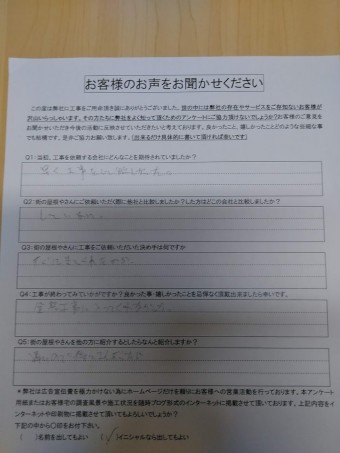 お客様のお声をお聞かせください
この度は弊社に工事をご用命頂き誠にありがとうございました。世の中には弊社の存在やサービスをご存知ないお客様が
沢山いらっしゃいます。その方たちに弊社をよく知って頂くためのアンケートにご協力頂けないでしょうか?お客様のご意見を
お聞かせいただき今後の活動に反映させていただきたいと考えております。良かったこと、嬉しかったことどのような些細な事
でも結構です。是非ご協力お願い致します。(出来るだけ具体的に書いて頂ければ幸いです)
Q1:当初、工事を依頼する会社にどんなことを期待されていましたか?
Q2:街の屋根やさんにご依頼いただく際に他社と比較しましたか?した方はどこの会社と比較しましたか?
していない。
Q3:街の屋根やさんに工事をご依頼いただいた決め手は何ですか
Q4:工事が終わってみていかがですか?良かった事・嬉しかったことを忌憚なく頂戴出来ましたら幸いです。
Q5:街の屋根やさんを他の方に紹介するとしたらなんと紹介しますか?
*弊社は広告宣伝費を極力かけない為にホームページだけを頼りにお客様への営業活動を行っております。本アンケート
用紙またはお客様宅の調査風景や施工状況を随時ブログ形式のインターネットに掲載させて頂いております。上記内容をイ
ンターネットや印刷物に掲載させて頂いてもよろしいでしょうか?
下記の中から○印をお付下さい。
( )名前を出してもよい (✓)イニシャルなら出してもよい